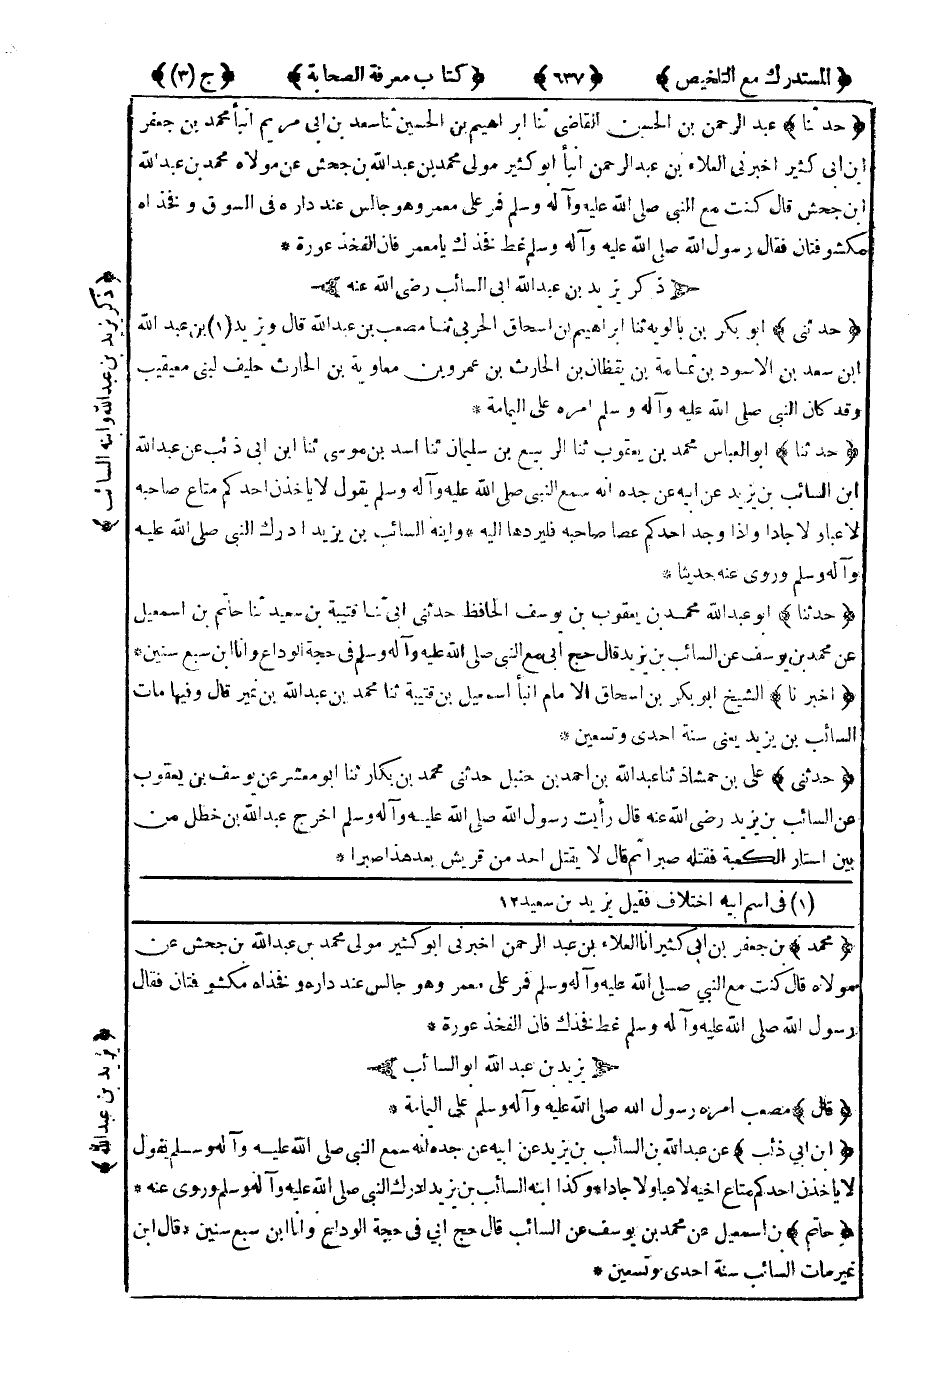 ﴿ المستدرك مع التلخيص ﴾ ﴿ ٦٣٧ ﴾ ﴿ كتاب معرفة الصحابة ﴾ ﴿ ج (٣) ﴾
﴿ حدثنا ﴾ عبد الرحمن بن الحسين القاضى ثنا ابراهيم بن الحسين ثنا سعد بن ابى مريم انبأ محمد بن جعفر
ابن ابى كثير اخبرنى العلاء بن عبد الرحمن انبأ ابو كثير مولى محمد بن عبدالله بن جحش عن مولاه محمد بن عبدالله
ابن جحش قال كنت مع النبى صلى الله عليه وآله وسلم فمر على معمر وهو جالس عند داره فى السوق و فخذاه
مكشوفتان فقال رسول الله صلى الله عليه وآله وسلم غط فخذك يا معمر فان الفخذ عورة *
﴿ ذكر يزيد بن عبدالله ابى السائب رضى الله عنه ﴾
﴿ حدثنى ﴾ ابو بكر بن بالويه ثنا ابراهيم بن اسحاق الحربى ثنا مصعب بن عبدالله قال ويزيد (١) بن عبد الله
ابن سعد بن الاسود بن ثمامة بن يقظان بن الحارث بن عمرو بن معاوية بن الحارث حليف لبنى معيقيب
وقد كان النبى صلى الله عليه وآله وسلم امره على اليمامة *
﴿ حدثنا ﴾ ابو العباس محمد بن يعقوب ثنا الربيع بن سليمان ثنا اسد بن موسى ثنا ابن ابى ذئب عن عبدالله
ابن السائب بن يزيد عن ابيه عن جده انه سمع النبى صلى الله عليه وآله وسلم يقول لا ياخذن احدكم متاع صاحبه
لاعبا ولا جادا واذا وجد احدكم عصا صاحبه فليردها اليه * وابنه السائب بن يزيد ادرك النبى صلى الله عليه
وآله وسلم وروى عنه حديثا *
﴿ حدثنا ﴾ ابو عبدالله محمد بن يعقوب بن يوسف الحافظ حدثنى ابى ثنا قتيبة بن سعيد ثنا حاتم بن اسمعيل
عن محمد بن يوسف عن السائب بن يزيد قال حج ابى مع النبى صلى الله عليه وآله وسلم فى حجة الوداع وانا ابن سبع سنين *
﴿ اخبرنا ﴾ الشيخ ابو بكر بن اسحاق الامام انبأ اسمعيل بن قتيبة ثنا محمد بن عبدالله بن نمير قال وفيها مات
السائب بن يزيد يعنى سنة احدى وتسعين *
﴿ حدثنى ﴾ على بن حمشاذ ثنا عبدالله بن احمد بن حنبل حدثنى محمد بن بكار ثنا ابو معشر عن يوسف بن يعقوب
عن السائب بن يزيد رضى الله عنه قال رأيت رسول الله صلى الله عليه وآله وسلم اخرج عبدالله بن خطل من
بين استار الكعبة فقتله صبرا ثم قال لا يقتل احد من قريش بعد هذا صبرا *
(١) فى اسم ابيه اختلاف فقيل يزيد بن سعيد ١٢
﴿ محمد ﴾ بن جعفر بن ابى كثير انا العلاء بن عبد الرحمن اخبرنى ابو كثير مولى محمد بن عبدالله بن جحش عن
مولاه قال كنت مع النبي صلى الله عليه وآله وسلم فمر على معمر وهو جالس عند داره و فخذاه مكشوفتان فقال
رسول الله صلى الله عليه وآله وسلم غط فخذك فان الفخذ عورة *
﴿ يزيد بن عبدالله ابو السائب ﴾
﴿ قال ﴾ مصعب امره رسول الله صلى الله عليه وآله وسلم على اليمامة *
﴿ ابن ابي ذئب ﴾ عن عبدالله بن السائب بن يزيد عن ابيه عن جده انه سمع النبي صلى الله عليه وآله وسلم يقول
لا ياخذن احدكم متاع اخيه لاعبا ولا جادا * وكذا ابنه السائب بن يزيد ادرك النبي صلى الله عليه وآله وسلم وروى عنه *
﴿ حاتم ﴾ بن اسمعيل عن محمد بن يوسف عن السائب قال حج ابي فى حجة الوداع وانا ابن سبع سنين * قال ابن
نمير مات السائب سنة احدى وتسعين *
﴿ ذكر يزيد بن عبدالله وابنه السائب ﴾
﴿ يزيد بن عبدالله ﴾